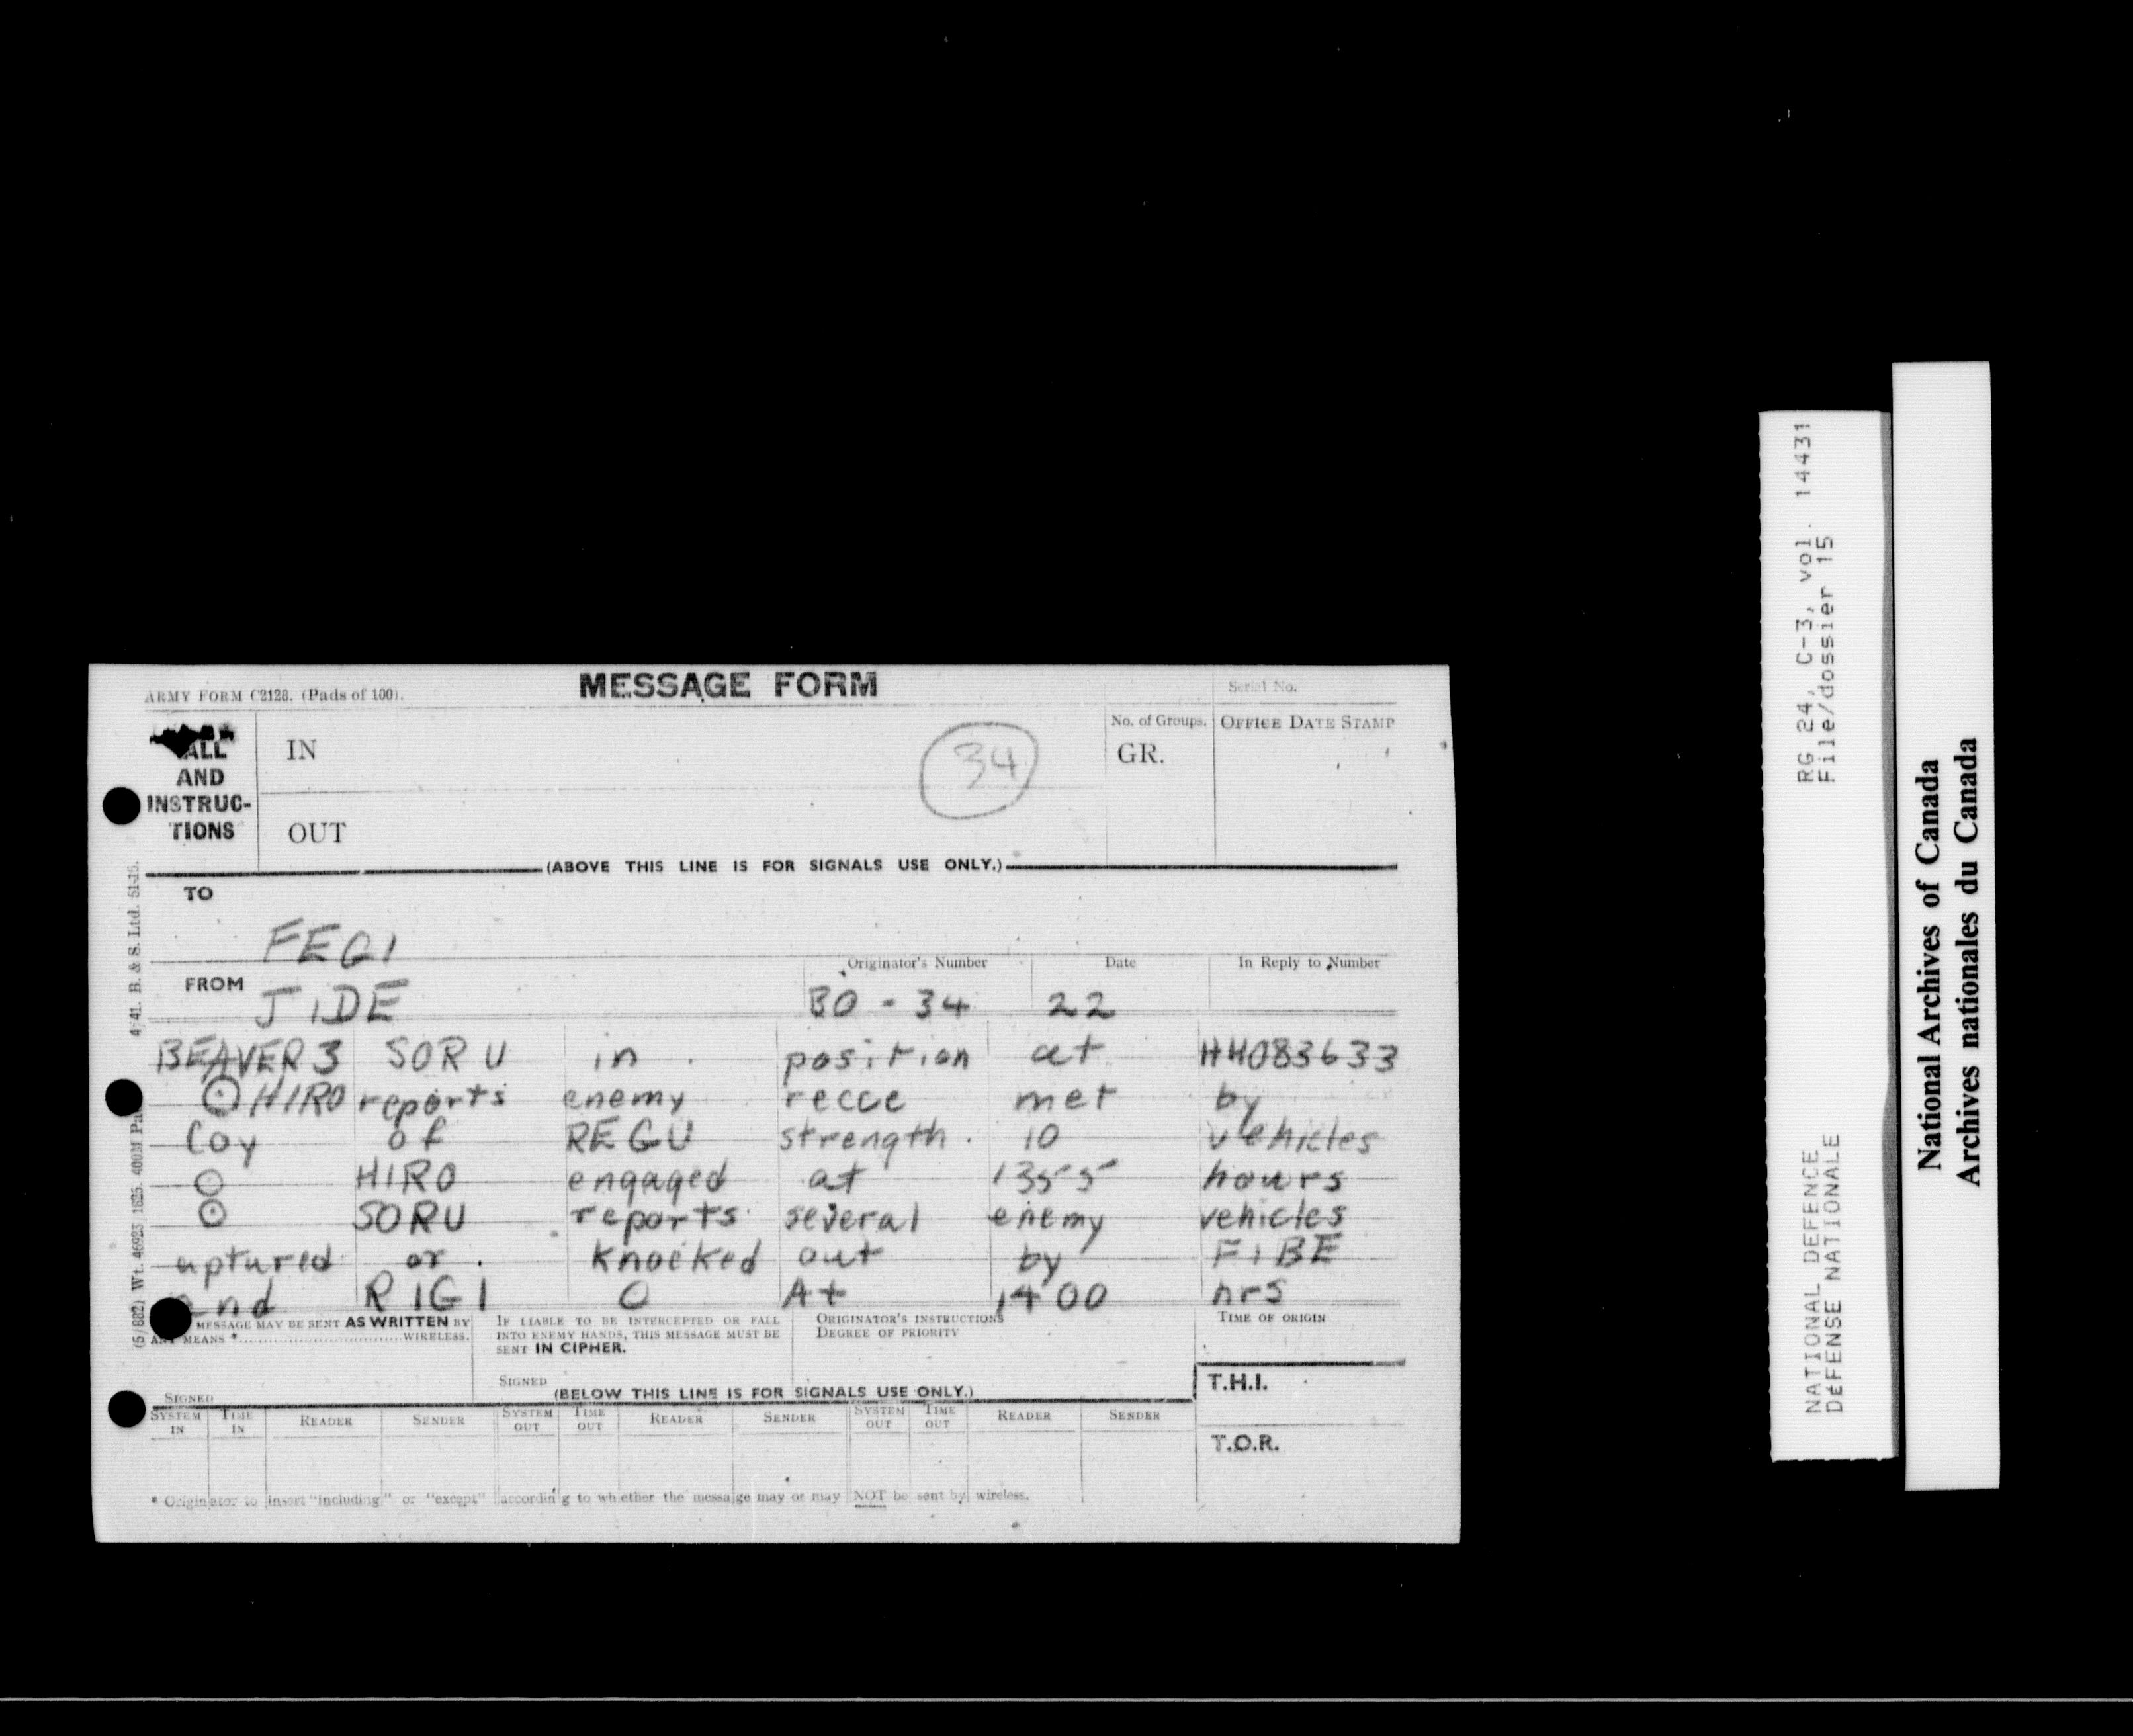 ARMY FORM C2128. (Pads of 100).
MESSAGE FORM
Serial No.
ALL
AND
INSTRUC-
TIONS
IN
OUT
34
No. of Groups.
GR.
OFFICE DATE STAMP
(ABOVE THIS LINE IS FOR SIGNALS USE ONLY.)
TO
FEGI
FROM
JIDE
Originator's Number
BO - 34
Date
22
In Reply to Number
BEAVER 3 SORU in position at HH083633
⊙ HIRO reports enemy recce met by
Coy of REGU strength 10 vehicles
⊙ HIRO engaged at 1355 hours
⊙ SORU reports several enemy vehicles
aptured or knocked out by FIBE
and RIGI O At 1400 hrs
MESSAGE MAY BE SENT AS WRITTEN BY
ANY MEANS * WIRELESS.
SIGNED
IF LIABLE TO BE INTERCEPTED OR FALL
INTO ENEMY HANDS, THIS MESSAGE MUST BE
SENT IN CIPHER.
SIGNED
ORIGINATOR'S INSTRUCTIONS
DEGREE OF PRIORITY
TIME OF ORIGIN
T.H.I.
T.O.R.
(BELOW THIS LINE IS FOR SIGNALS USE ONLY.)
SYSTEM IN TIME IN READER SENDER SYSTEM OUT TIME OUT READER SENDER SYSTEM OUT TIME OUT READER SENDER
* Originator to insert "including" or "except" according to whether the message may or may NOT be sent by wireless.
(5/882) Wt. 46923/1825. 400M Pa 4/41. B. & S. Ltd. 51-15.
RG 24, C-3, vol. 14431
File/dossier 15
NATIONAL DEFENCE
DÉFENSE NATIONALE
National Archives of Canada
Archives nationales du Canada